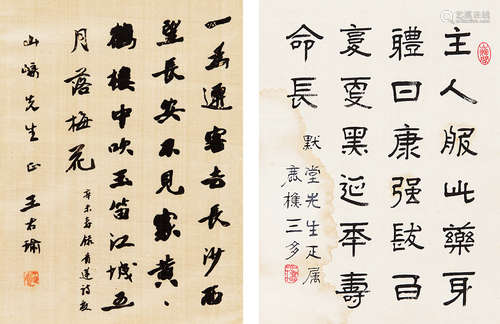 一為遷客去長沙西
望長安不見家黃
鶴樓中吹玉笛江城五
月落梅花
辛未春錄青蓮詩奉
先生正 王右瑜
主人服此藥身
體日康强髮白
夏更黑延年壽
命長
默堂先生正屬
鹿樵三多